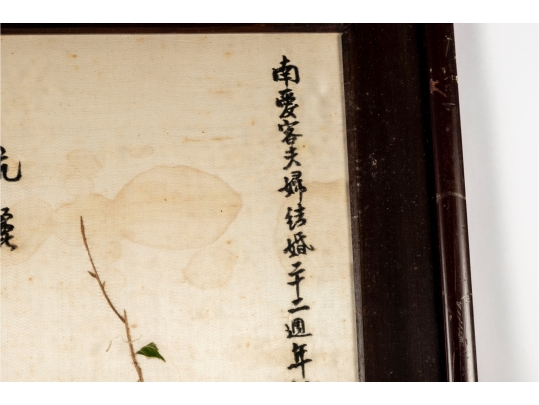 南愛客夫婦結婚二十二週年